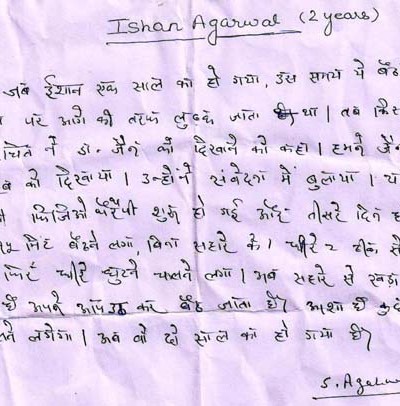 Ishan Agarwal (2 years)
जब ईशान एक साल का हो गया, उस समय ये बैठ
पर आगे की तरफ लुढ़क जाता था। तब किसी
ने डा. जैन को दिखाने को कहा। हमने जैन
को दिखाया। उन्होंने संवेदना में बुलाया। य
फिजिओ थैरेपी शुरू हो गई और तीसरे दिन
मिनट बैठने लगा, बिना सहारे के। धीरे २ ठीक से
फिर धीरे घुटने चलने लगा। अब सहारे से खड़ा
है अपने आप उठ कर बैठ जाता है। आशा है
लगेगा। अब वो दो साल का हो गया है।
S. Agarw